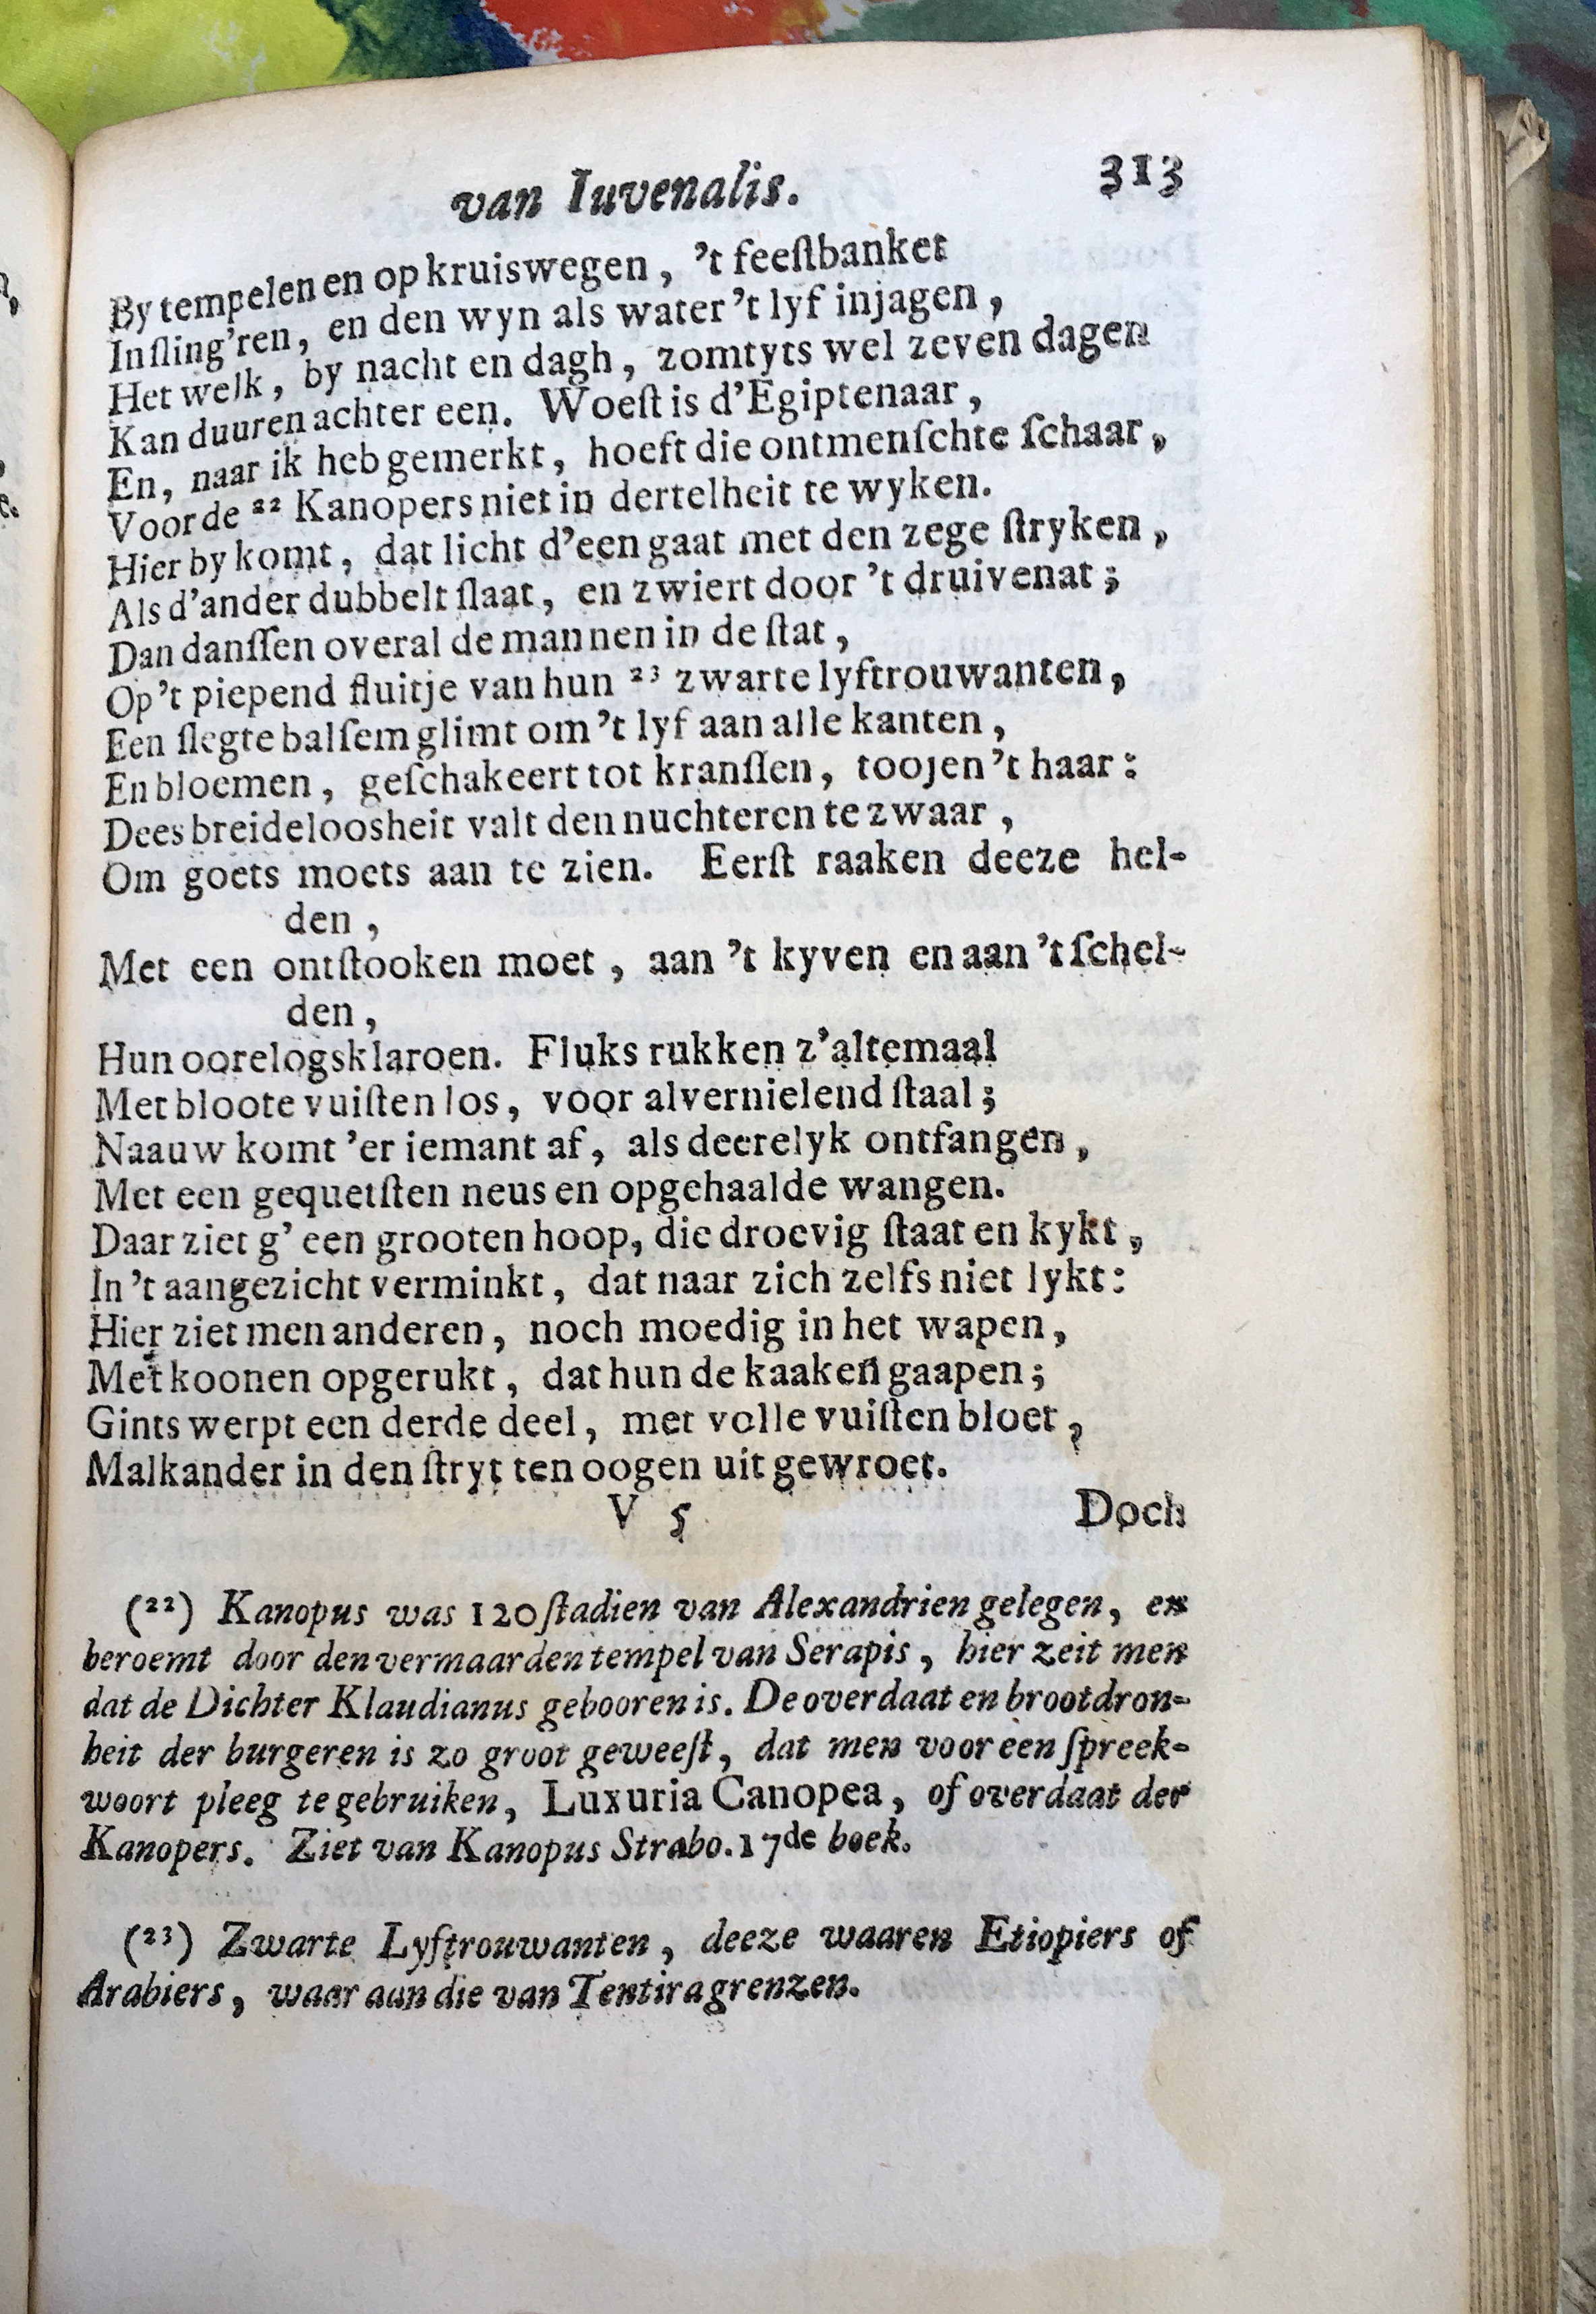 van Iuvenalis. 313
By tempelen en op kruiswegen, 't feeſtbanket
Inſling'ren, en den wyn als water 't lyf injagen,
Het welk, by nacht en dagh, zomtyts wel zeven dagen
Kan duuren achter een. Woeſt is d'Egiptenaar,
En, naar ik heb gemerkt, hoeft die ontmenſchte ſchaar,
Voor de ²² Kanopers niet in dertelheit te wyken.
Hier by komt, dat licht d'een gaat met den zege ſtryken,
Als d'ander dubbelt ſlaat, en zwiert door 't druivenat;
Dan danſſen overal de mannen in de ſtat,
Op 't piepend fluitje van hun ²³ zwarte lyftrouwanten,
Een ſlegte balſem glimt om 't lyf aan alle kanten,
En bloemen, geſchakeert tot kranſſen, toojen 't haar:
Dees breideloosheit valt den nuchteren te zwaar,
Om goets moets aan te zien. Eerſt raaken deeze hel-
den,
Met een ontſtooken moet, aan 't kyven en aan 't ſchel-
den,
Hun oorelogsklaroen. Fluks rukken z'altemaal
Met bloote vuiſten los, voor alvernielend ſtaal;
Naauw komt 'er iemant af, als deerelyk ontfangen,
Met een gequetſten neus en opgehaalde wangen.
Daar ziet g' een grooten hoop, die droevig ſtaat en kykt,
In 't aangezicht verminkt, dat naar zich zelfs niet lykt:
Hier ziet men anderen, noch moedig in het wapen,
Met koonen opgerukt, dat hun de kaaken gaapen;
Gints werpt een derde deel, met volle vuiſten bloet,
Malkander in den ſtryt ten oogen uit gewroet.
V 5 Doch
(²²) Kanopus was 120 ſtadien van Alexandrien gelegen, en
beroemt door den vermaarden tempel van Serapis, hier zeit men
dat de Dichter Klaudianus gebooren is. De overdaat en brootdron-
heit der burgeren is zo groot geweeſt, dat men voor een ſpreek-
woort pleeg te gebruiken, Luxuria Canopea, of overdaat der
Kanopers. Ziet van Kanopus Strabo. 17de boek.
(²³) Zwarte Lyftrouwanten, deeze waaren Etiopiers of
Arabiers, waar aan die van Tentira grenzen.